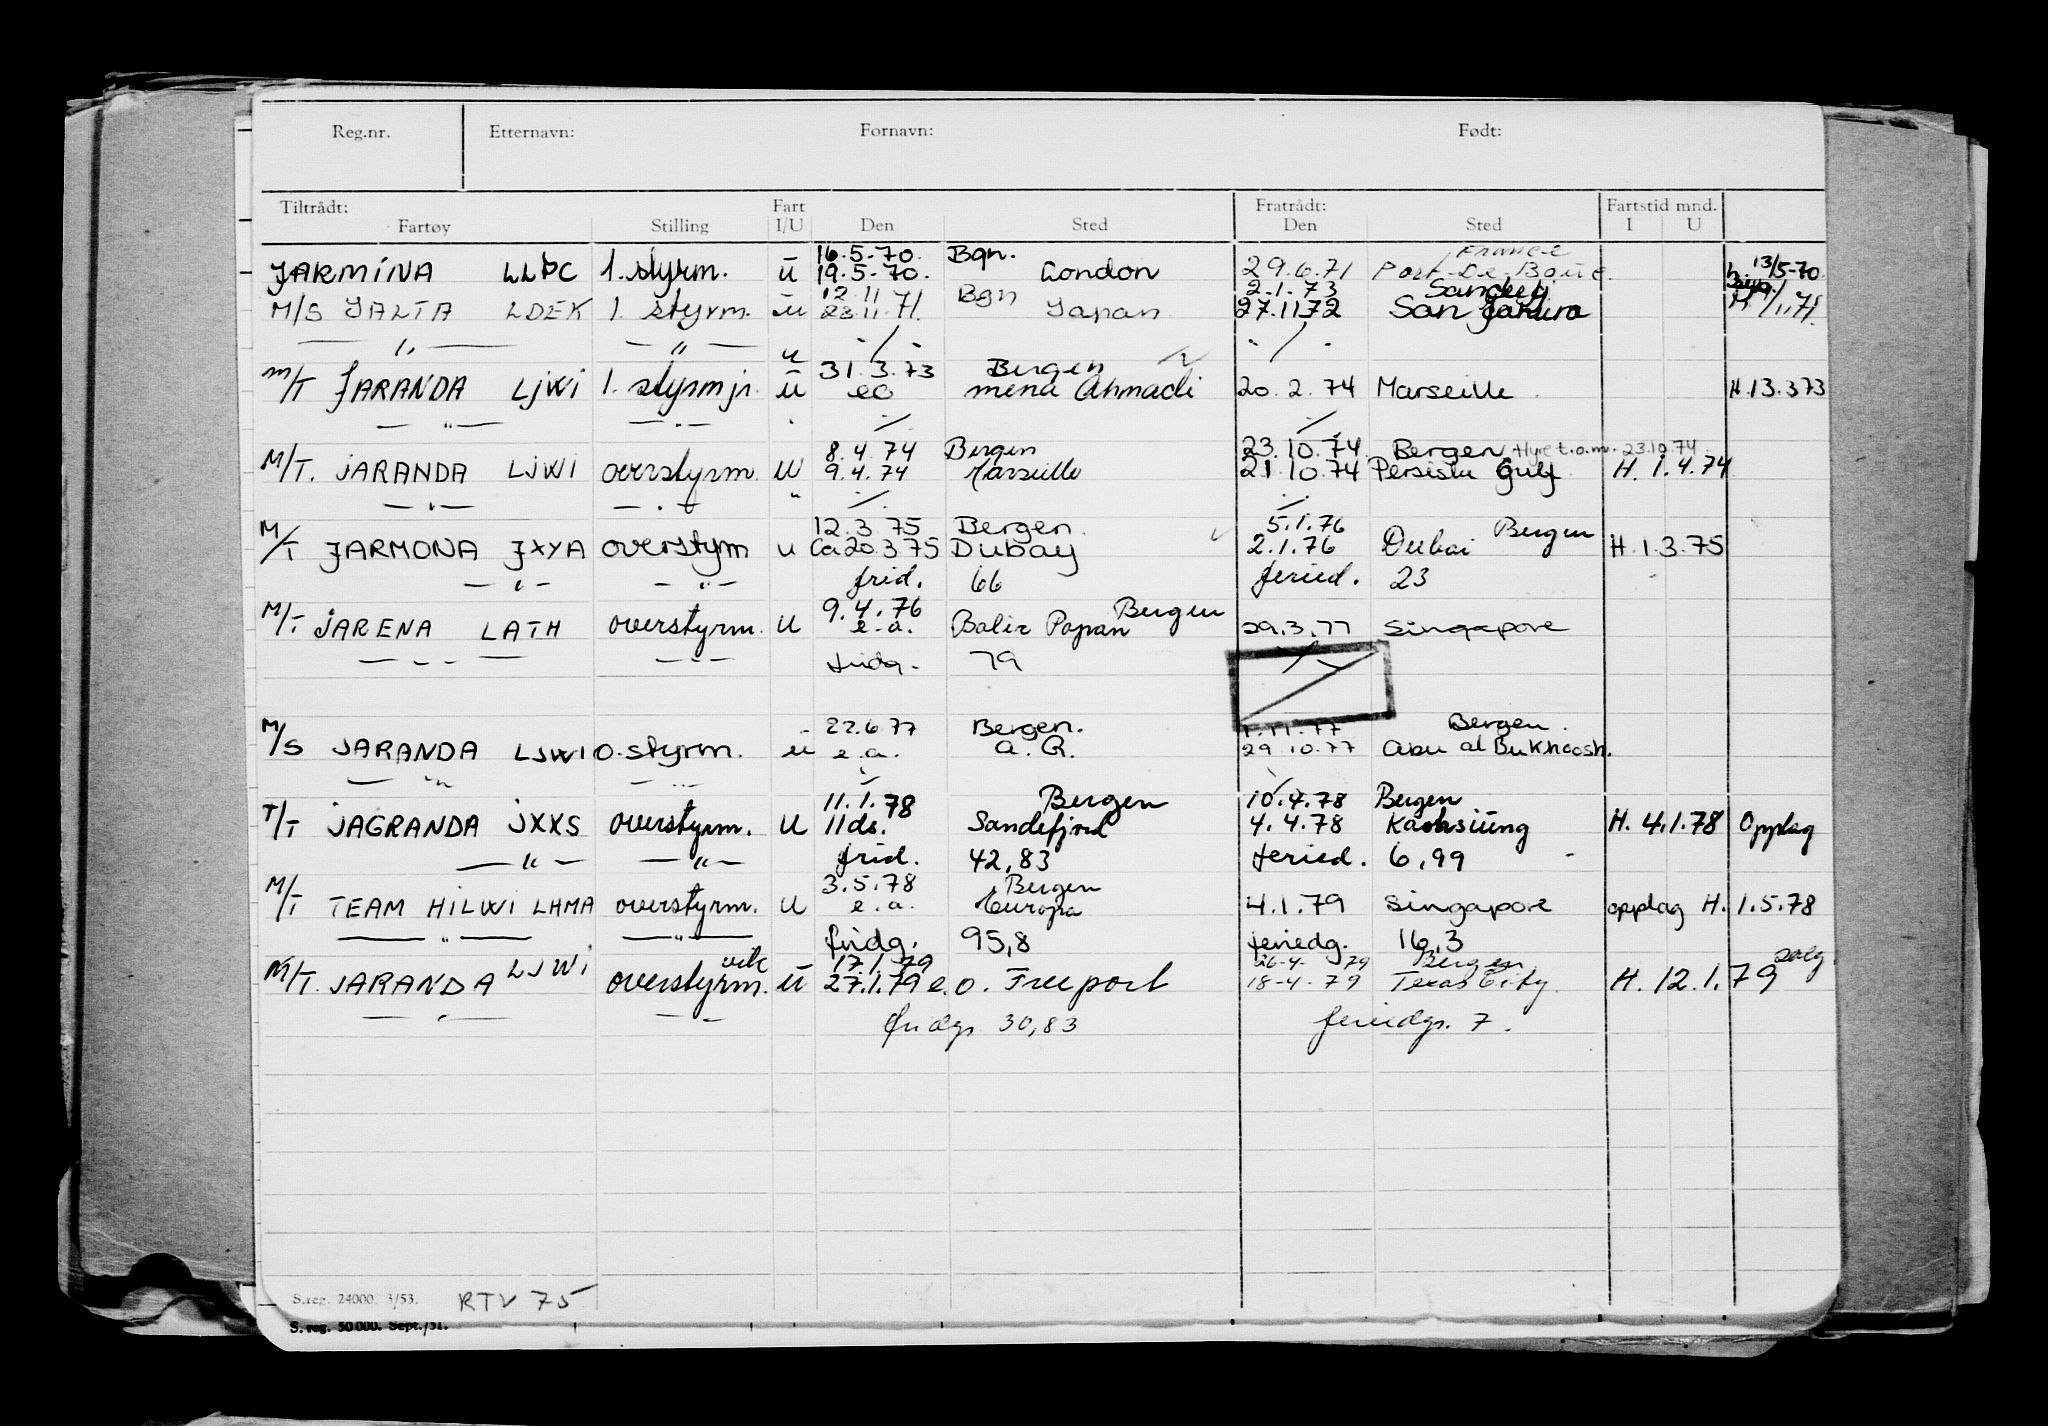 Reg.nr. Etternavn: Fornavn: Født:
Tiltrådt: Fart Fratrådt: Fartstid mnd.
Fartøy Stilling I/U Den Sted Den Sted I U
16.5-70. Bgn. France 13/5-70.
JARMINA 1. styrm. u 19.5-70. London 29.6.71
12.11 Bgn 2.1.73
M/S JALTA LDEK 1. styrm. u 23.11.71. Japan 27.11.72 San
— " — — " — u
31.3.73 Bergen
M/T JARANDA LJWI 1. styrm jr. u eo mena Ahmadi 20.2.74 Marseille H.13.3.73
— " — — " —
8.4.74 Bergen 23.10.74 Bergen Hyre t.o.m. 23.10.74.
M/T. JARANDA LJWI overstyrm. U 9.4.74 Marseille 21.10.74 Persiske Gulf H. 1.4.74
— " — — " — "
12.3.75 Bergen. 5.1.76 Bergen
M/T JARMONA JXYA overstyrm u ca 20.3.75 Dubay 2.1.76 Dubai H.1.3.75
— " — — " — frid. 66 feried. 23
9.4.76 Bergen
M/T JARENA LATH overstyrm. U e.a. Balix Papan 29.3.77 Singapore
— " — — " — fridg. 79
22.6.77 Bergen. 1.11.77 Bergen.
M/S JARANDA LJWI O. styrm. u e.a. 29.10.77 Abu al Bukhoosh.
— " — — " —
11.1.78 Bergen 10.4.78 Bergen
T/T JAGRANDA JXXS overstyrm. U 11 ds. Sandefjord 4.4.78 Kaohsiung H. 4.1.78 Opplag
— " — — " — frid. 42,83 feried. 6,99
3.5.78 Bergen
M/T TEAM HILWI LHMA overstyrm. U e.a. Europa 4.1.79 Singapore opplag H. 1.5.78
— " — — " — fridg. 95,8 feriedg. 16,3
vik 17.1.79 26-4-79 Bergen solg
M/T. JARANDA LJWI overstyrm. u 27.1.79 e.o. Freeport 18-4-79 Texas City H. 12.1.79
— " — — " — fridgr 30,83 feriedgr. 7.
S.reg. 24000. 3/53. RTV 75
S. reg. 50 000. Sept./51.